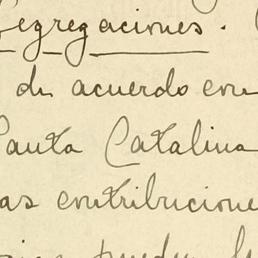 Segregaciones.
de acuerdo con
Santa Catalina
as contribucione
pueden